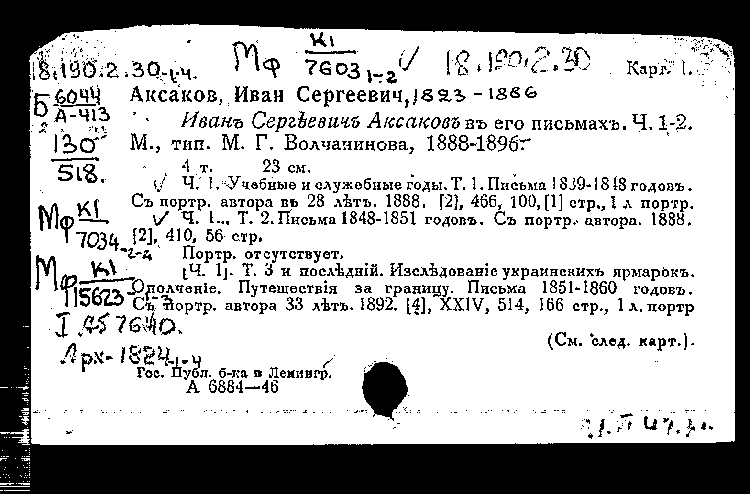 18.190.2.30-1-4.
Мф К1/7603 1-2
18.190.2.30
Карт. 1.
Б 6044/А-413
Аксаков, Иван Сергеевич, 1823-1886
Иванъ Сергѣевичъ Аксаковъ въ его письмахъ. Ч. 1-2.
130/518.
М., тип. М. Г. Волчанинова, 1888-1896.
4 т. 23 см.
Ч. 1. Учебные и служебные годы. Т. 1. Письма 1839-1848 годовъ.
Съ портр. автора въ 28 лѣтъ. 1888. [2], 466, 100, [1] стр., 1 л портр.
Мф К1/7034 -2-2
Ч. 1... Т. 2. Письма 1848-1851 годовъ. Съ портр. автора. 1888.
[2], 410, 56 стр.
Портр. отсутствует.
Мф К1/15623 1-3
[Ч. 1]. Т. 3 и послѣдній. Изслѣдованіе украинскихъ ярмарокъ.
Ополченіе. Путешествія за границу. Письма 1851-1860 годовъ.
Съ портр. автора 33 лѣтъ. 1892. [4], XXIV, 514, 166 стр., 1 л. портр
I А57640.
(См. след. карт.).
Арх-1884 1-4
Гос. Публ. б-ка в Ленингр.
А 6884—46